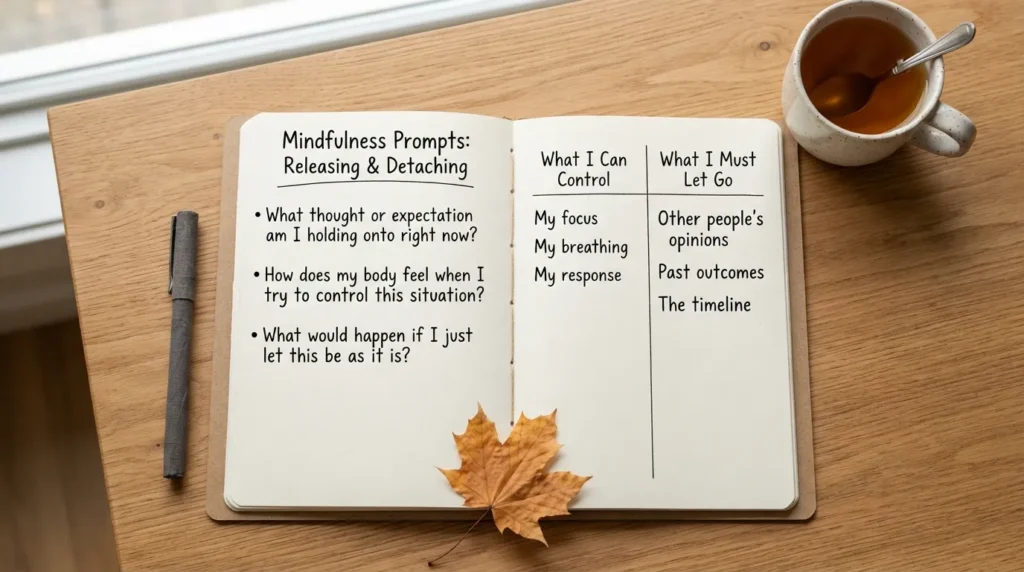 Mindfulness Prompts:
Releasing & Detaching
• What thought or expectation
am I holding onto right now?
• How does my body feel when I
try to control this situation?
• What would happen if I just
let this be as it is?
What I Can
Control
My focus
My breathing
My response
What I Must
Let Go
Other people's
opinions
Past outcomes
The timeline